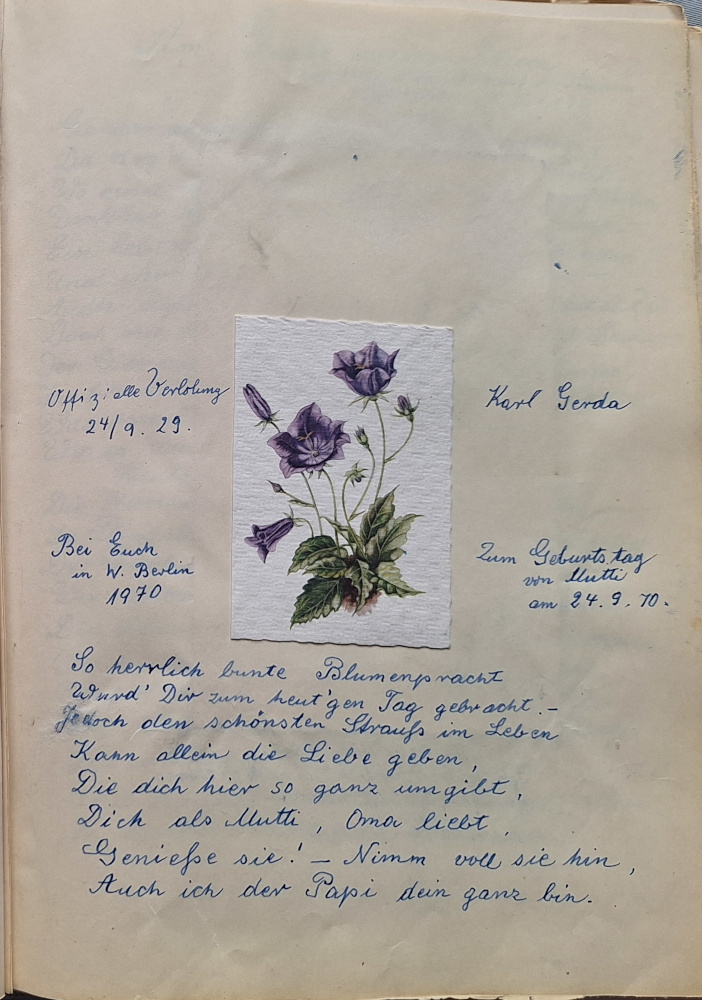 Offizielle Verlobung
24/9. 29.
Karl Gerda
Bei Euch
in W. Berlin
1970
Zum Geburtstag
von Mutti
am 24. 9. 70.
So herrlich bunte Blumenpracht
Wurd' Dir zum heut'gen Tag gebracht. –
Jedoch den schönsten Strauß im Leben
Kann allein die Liebe geben,
Die dich hier so ganz umgibt,
Dich als Mutti, Oma liebt,
Genieße sie! – Nimm voll sie hin,
Auch ich der Papi dein ganz bin.